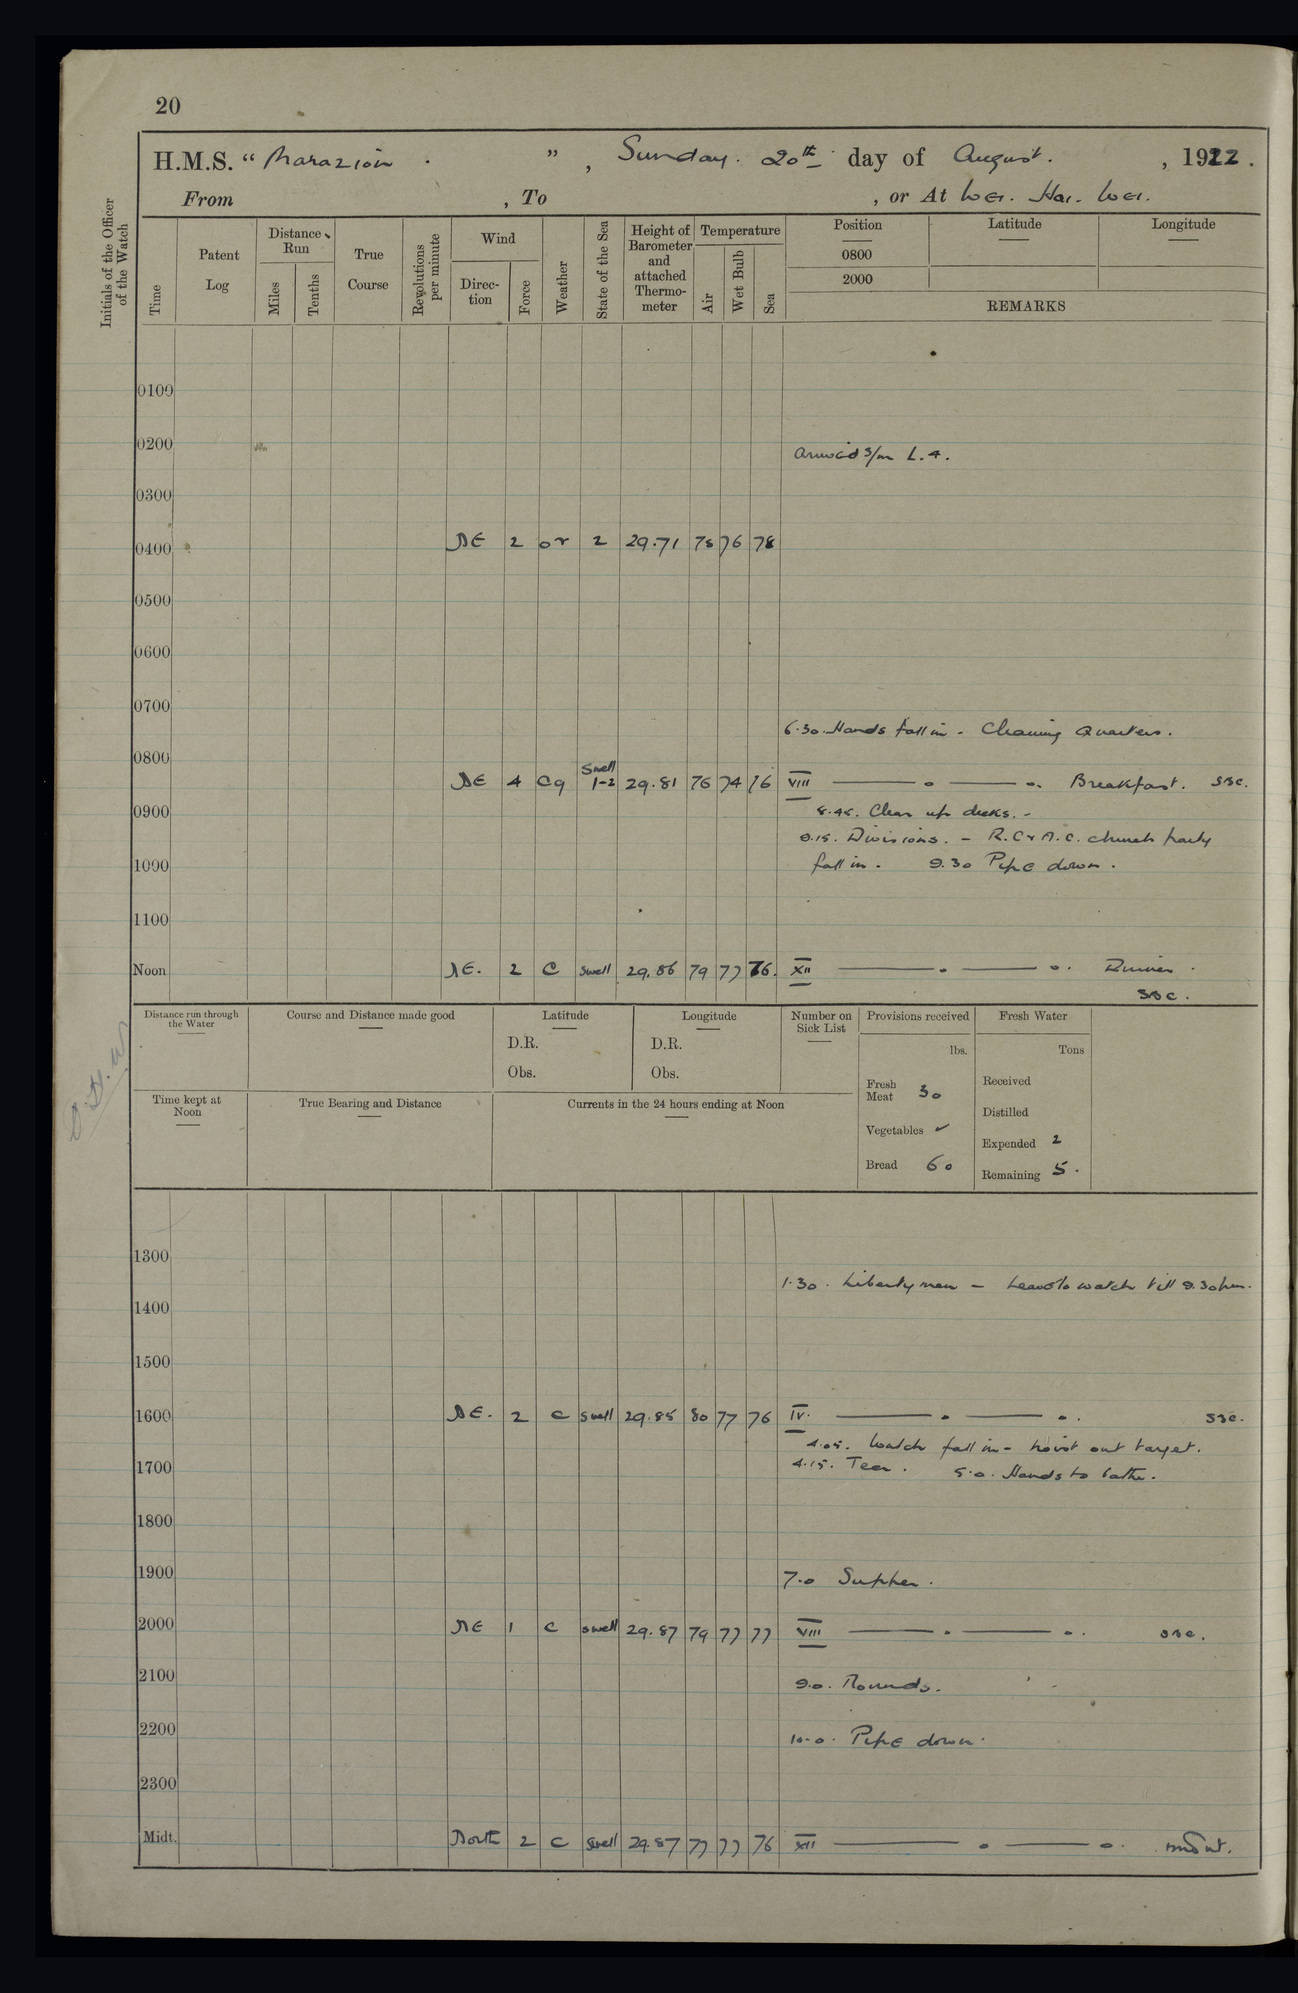 20
H.M.S. "Marazion.", Sunday. 20th day of August., 1922.
From , To , or At Wei. Hai. Wei.
Initials of the Officer of the Watch
Time
Patent Log
Distance Run
Miles
Tenths
True Course
Revolutions per minute
Wind
Direction
Force
Weather
State of the Sea
Height of Barometer and attached Thermometer
Temperature
Air
Wet Bulb
Sea
Position
0800
2000
Latitude
Longitude
REMARKS
0100
0200
Arrived S/m L.4.
0300
0400 NE 2 or 2 29.71 78 76 78
0500
0600
0700
6.30. Hands fall in - Cleaning Quarters.
0800 NE 4 cq Swell 1-2 29.81 76 74 76 VIII Breakfast. SBC.
0900
8.45. Clear up decks. -
9.15. Divisions. - R.C & N.C. church party
1000
fall in. 9.30 Pipe down.
1100
Noon NE. 2 C swell 29.86 79 77 76. XII Dinner.
SBC.
Distance run through the Water
Course and Distance made good
Latitude
D.R.
Obs.
Longitude
D.R.
Obs.
Number on Sick List
Provisions received
lbs.
Fresh Meat 30
Vegetables ✓
Bread 60
Fresh Water
Tons
Received
Distilled
Expended 2
Remaining 5.
Time kept at Noon
True Bearing and Distance
Currents in the 24 hours ending at Noon
1300
1.30. Liberty men - Leave to watch till 9.30 pm.
1400
1500
1600 NE. 2 c swell 29.85 80 77 76 IV. SBC.
4.05. Watch fall in - hoist out target.
1700
4.15. Tea. 5.0. Hands to bathe.
1800
1900
7.0 Supper.
2000 NE 1 c swell 29.87 79 77 77 VIII SBC.
2100
9.0. Rounds.
2200
10.0. Pipe down.
2300
Midt. North 2 c swell 29.87 77 77 76 XII